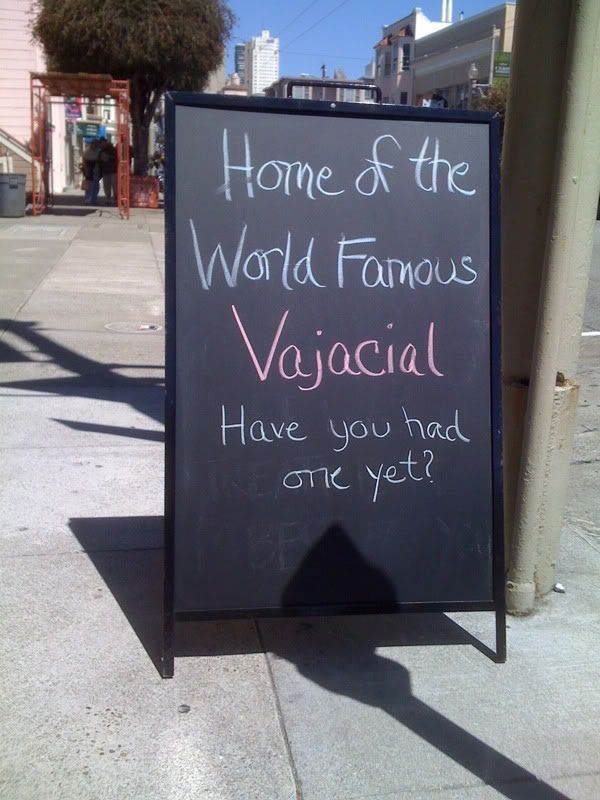 Home of the
World Famous
Vajacial
Have you had
one yet?